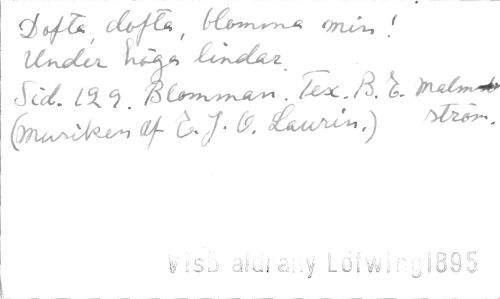 Dofta, dofta, blomma min!
Under höga lindar.
Sid. 129. Blomman. Tex. B. E. Malm-
ström.
(Musiken af E. J. O. Laurin.)
Löfwing 1895